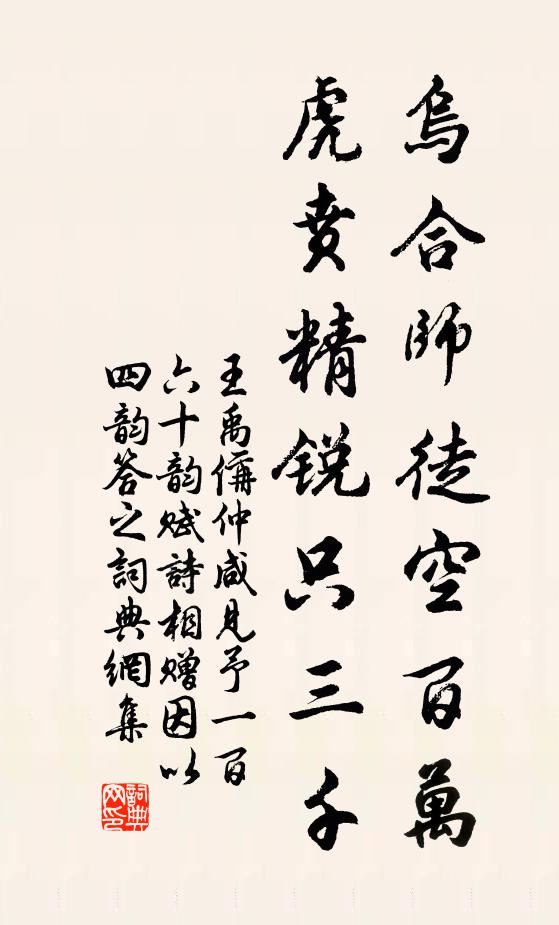 烏合師徒空百萬
虎賁精銳只三千
王禹偁仲咸見予一百
六十韵赋詩相赠因以
四韵答之詞典網集
詞典网印